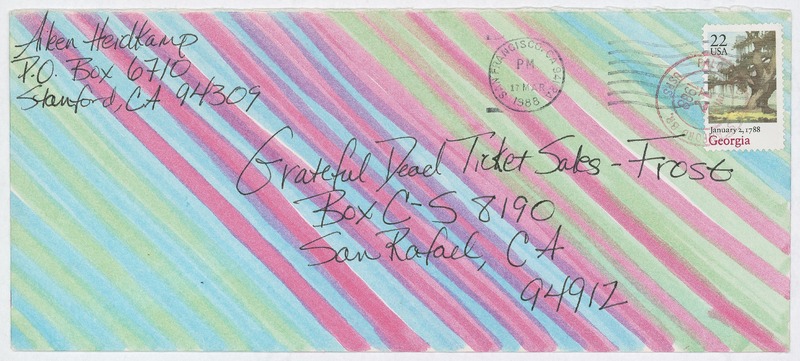 Aiken Heidkamp
P.O. Box 6710
Stanford, CA 94309
SAN FRANCISCO, CA
PM
17 MAR
1988
22
USA
January 2, 1788
Georgia
Grateful Dead Ticket Sales - Frost
Box C-S 8190
San Rafael, CA
94912